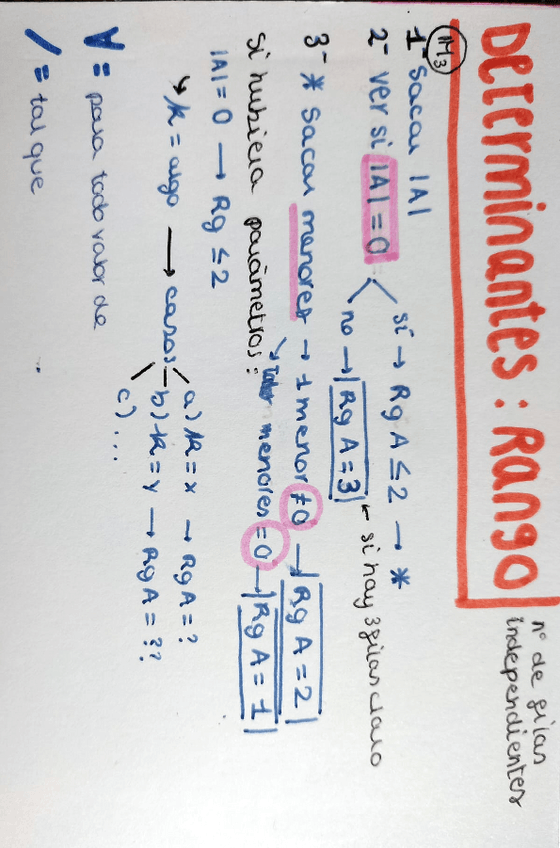 Determinantes: Rango
nº de filas
independientes
M3
1- sacar |A|
2- ver si |A| = 0
sí → Rg A ≤ 2 → *
no → Rg A = 3 ← si hay 3 filas claro
3- * sacar menores → 1 menor ≠ 0 → Rg A = 2
↘ menores = 0 → Rg A = 1
si hubiera parámetros:
|A| = 0 → Rg ≤ 2
↳ k = algo → casos
a) k = x → Rg A = ?
b) k = y → Rg A = ??
c) ...
∀ = para todo valor de
/ = tal que